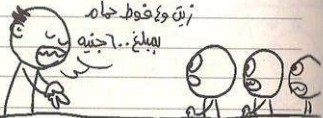 زيت و٤ فوط حمام
بمبلغ ٦٠٠ جنيه